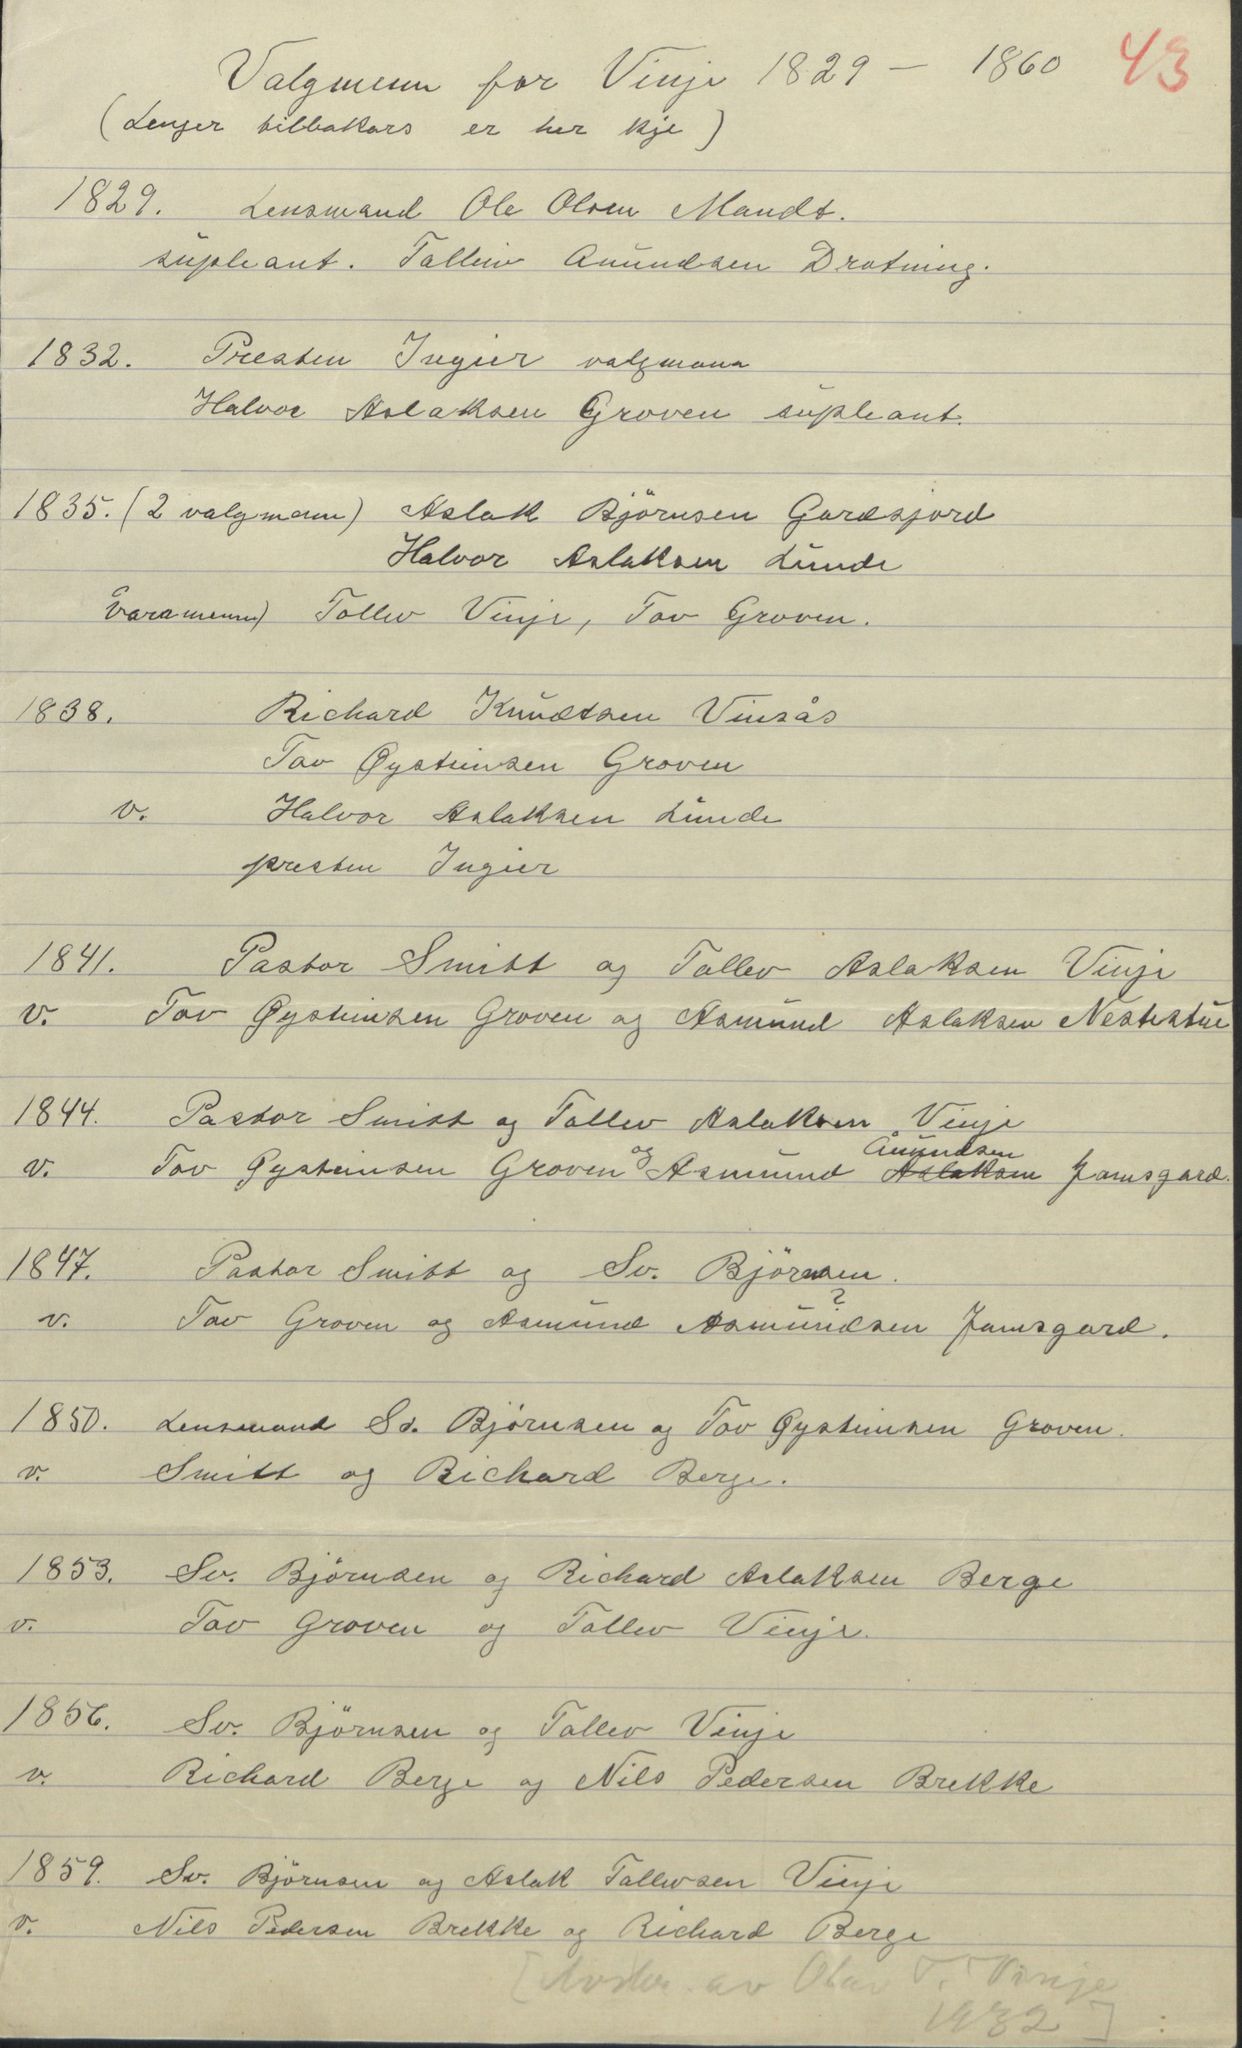 43
Valgmenn for Vinje 1829 – 1860
(Lenger tilbakars er her kje)
1829. Lensmand Ole Olsen Mandt.
supleant. Talleiv Anundsen Drotning.
1832. Presten Ingier valgmann
Halvor Aslaksen Groven supleant.
1835. (2 valgmenn) Aslak Björnsen Gardsjord
Halvor Aslaksen Lunde
(varamenn) Tollev Vinje, Tov Groven.
1838. Richard Knudtsen Vinsås
Tov Øysteinsen Groven
v. Halvor Aslaksen Lunde
presten Ingier
1841. Pastor Smitt og Tallev Aslaksen Vinje
v. Tov Øysteinsen Groven og Asmund Aslaksen Nestestue
1844. Pastor Smitt og Tallev Aslaksen Vinje
v. Tov Øysteinsen Groven og Asmund Aslaksen Anundsen Jamsgard.
1847. Pastor Smitt og Sv. Björnsen.
v. Tov Groven og Asmund Asmundsen ? Jamsgard.
1850. Lensmand Sv. Björnsen og Tov Øysteinsen Groven.
v. Smitt og Richard Berge.
1853. Sv. Björnsen og Richard Aslaksen Berge
v. Tov Groven og Tallev Vinje.
1856. Sv. Björnsen og Tallev Vinje
v. Richard Berge og Nils Pedersen Brekke
1859. Sv. Björnsen og Aslak Tallevsen Vinje
v. Nils Pedersen Brekke og Richard Berge
[Avskr. av Olav T. Vinje
1932]